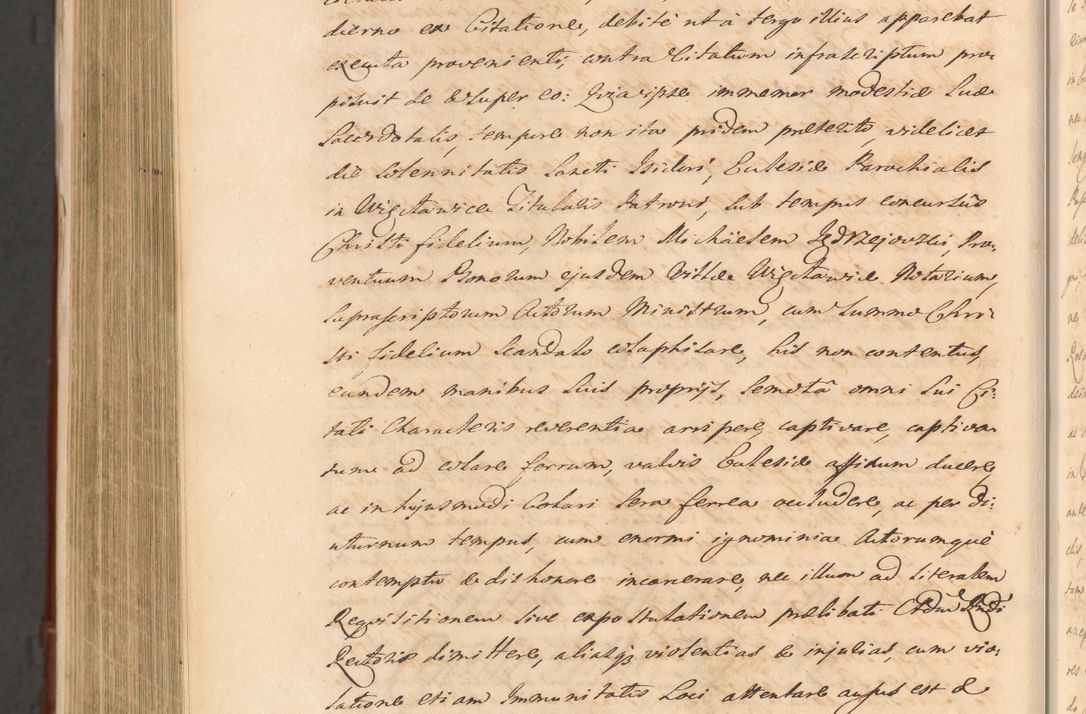 dierno ex Citatione, debite ut à tergo illius apparebat
executa provenienti, contra Citatum infrascriptum pro-
posuit de & super eo: Quia ipse immemor modestiæ Suæ
Sacerdotalis, tempore non ita pridem præterito, videlicet
die Solennitatis Sancti Isidori, Ecclesiæ Parochialis
in Więcławice Titularis Patroni, sub tempus concursûs
Christi fidelium, Nobilem Michäelem Jędrzejowski, Pro-
ventuum Bonorum ejusdem Villæ Więcławice Notarium,
suprascriptorum Actorum Ministrum, cum summo Chri-
sti fidelium Scandalo colaphisare, his non contentus,
eundem manibus suis proprijs, semotâ omni sui Ci-
tati Characteris reverentia arripere, captivare, captiva-
tum ad colare ferrum, valvis Ecclesiæ affixum ducere,
ac in hujusmodi Colari Sera ferrea occludere, ac per di-
uturnum tempus, cum enormi ignominia Actorumque
contemptu & dishonore incarcerare, nec illum ad literalem
Requisitionem sive expostulationem prælibati Adm Rndi
Rectoris dimittere, aliasq3 violentias & injurias, cum vio-
latione etiam Immunitatis Loci attentare ausus est &